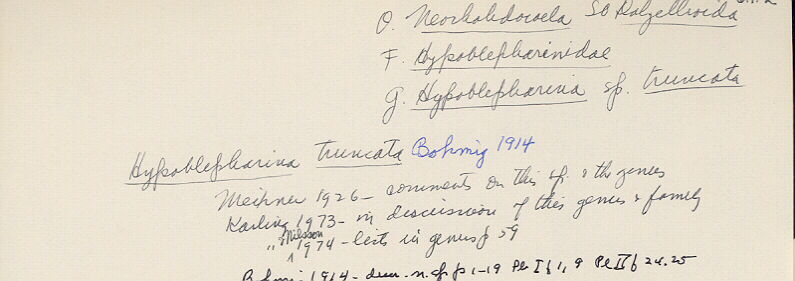 O. Neorhabdocoela SO Dalyellioida
F. Hypoblepharinidae
G. Hypoblepharina sp. truncata
Hypoblepharina truncata Bohmig 1914
Meixner 1926 - comments on this sp. & the genus
Karling 1973 - in discussion of this genus & family
" & Nilsson 1974 - lists in genus p 59
Bohmig 1914 - descr. n. sp p 1-19 Pl I f 1, 9 Pl II f 24.25